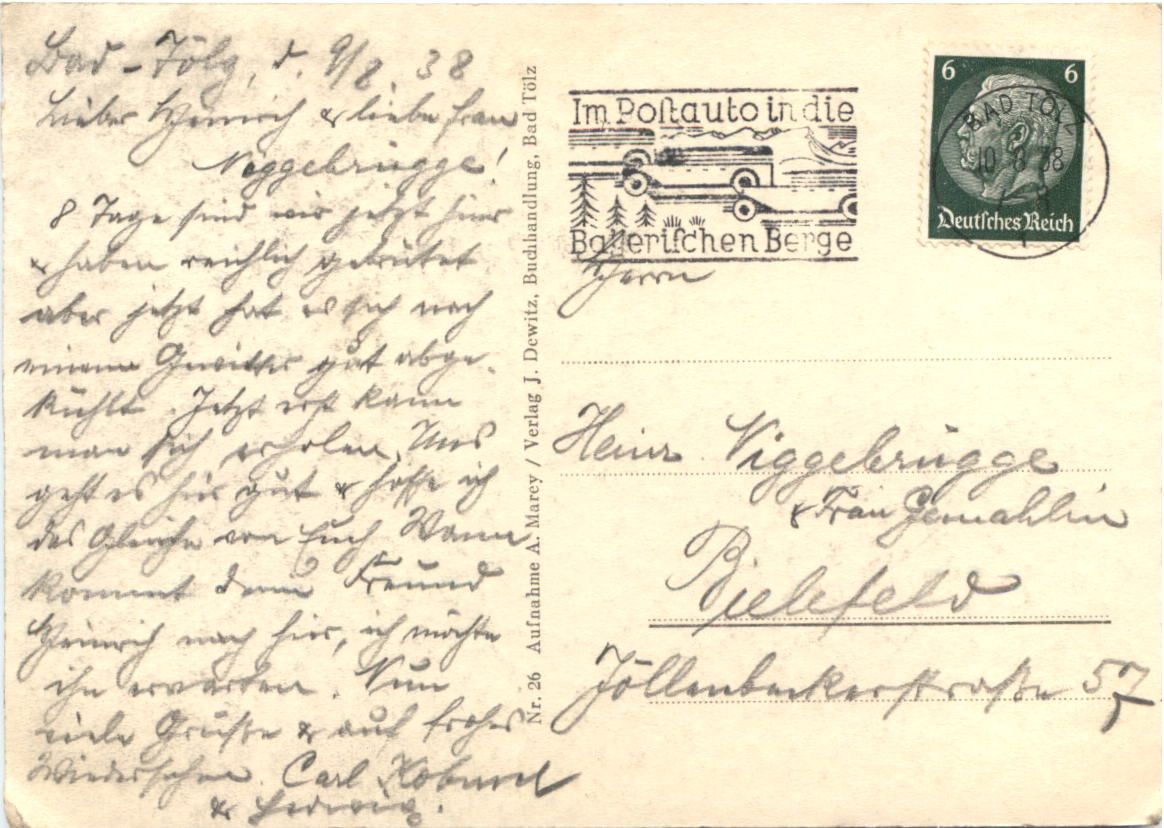 Bad-Tölz, d. 9/8. 38
Lieber Heinrich & liebe Frau
Niggebrügge!
8 Tage sind wir jetzt hier
& haben reichlich gebrütet
aber jetzt hat es sich nach
einem Gewitter gut abge-
kühlt. Jetzt erst kann
man sich erholen. Uns
geht es hier gut & hoffe ich
das Gleiche von Euch. Wann
kommt denn Freund
Heinrich nach hier, ich möchte
ihn erwarten. Nun
viele Grüße & auf frohes
Wiedersehen. Carl
& Hedwig.
Nr. 26 Aufnahme A. Marey / Verlag J. Dewitz, Buchhandlung, Bad Tölz
Im Postauto in die
Bayerischen Berge
6 6
Deutsches Reich
BAD TÖLZ
10 8 38
Herrn
Heinr. Niggebrügge
& Frau Gemahlin
Bielefeld
Jöllenbeckerstraße 57